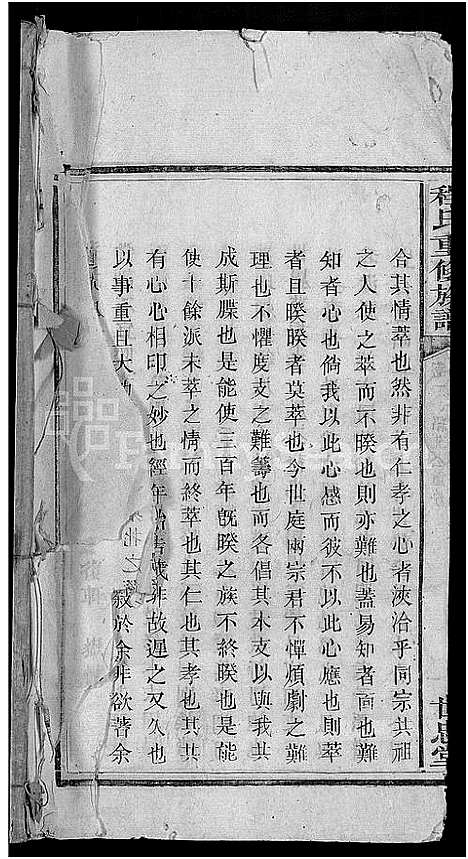 程氏重修族譜
世恩堂
合其情萃也然非有仁孝之心者浹洽乎同宗共祖
之人使之萃而不睽也則亦難也蓋易知者面也難
知者心也倘我以此心感而彼不以此心應也則萃
者且睽睽者莫萃也今世庭兩宗君不憚煩劇之難
理也不懼度支之難籌也而各倡其木支以與我共
成斯牒也是能使三百年旣睽之族不終睽也是能
使十餘派未萃之情而終萃也其仁也其孝也其共
有心心相印之妙也經年 非故遲之又久也
以事重且大 敍於余非欲著余